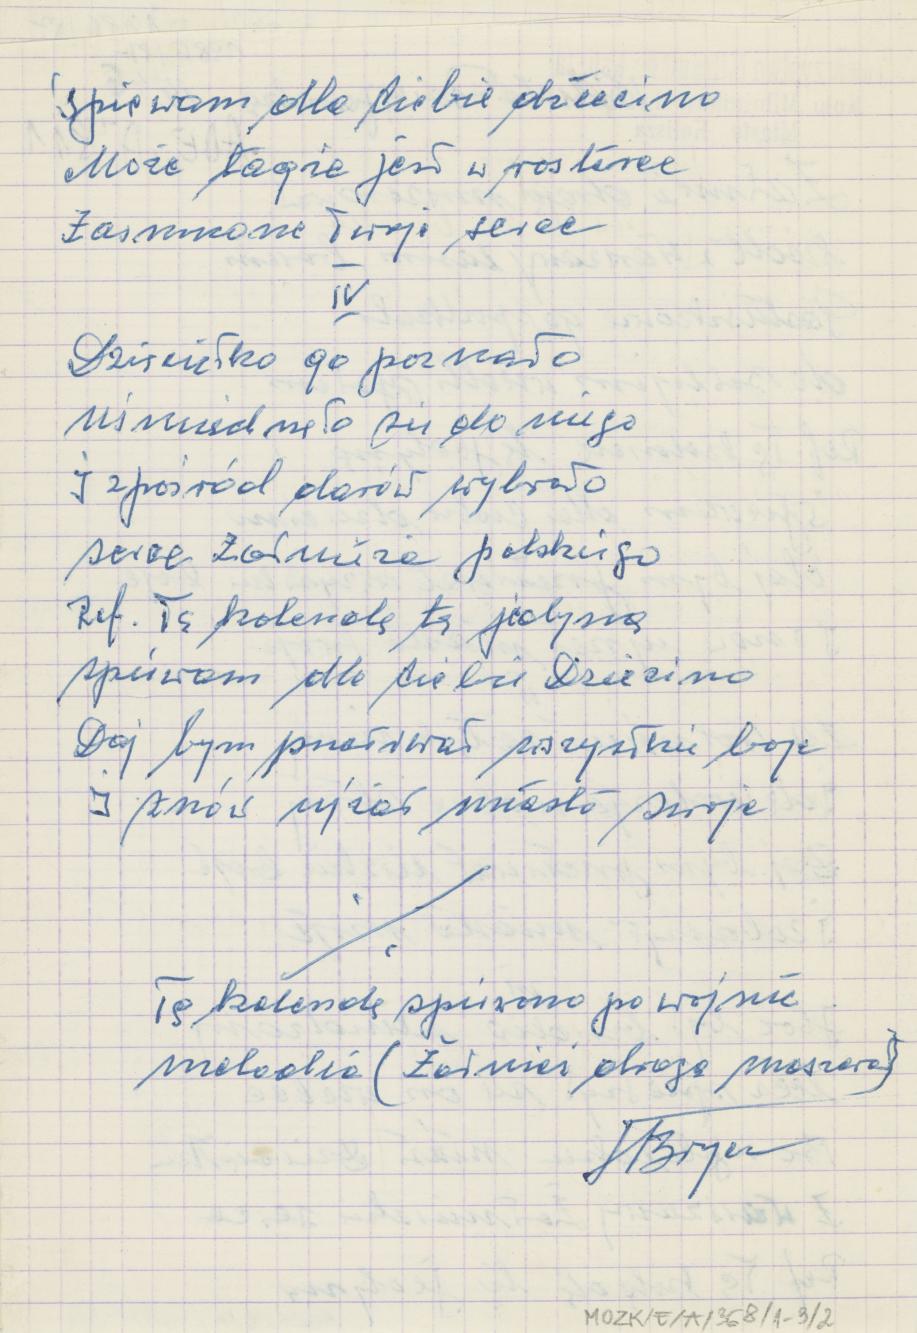 Śpiewam dla Ciebie dziecino
Może także jest w rosterce
Zasmucone Twoje serce
IV
Dzieciątko go poznało
Uśmiechnęło się do niego
I spośród darów wybrało
serce Żołnierza polskiego
Ref. Tę kolendę tą jedyną
śpiewam dla Ciebie Dziecino
Daj bym przetrwał wszystkie boje
I znów ujżał miasto swoje
Tę kolendę śpiewano po wojnie
melodia (Żołnież drogą maszerał)
MOZK/E/A/368/1-3/2